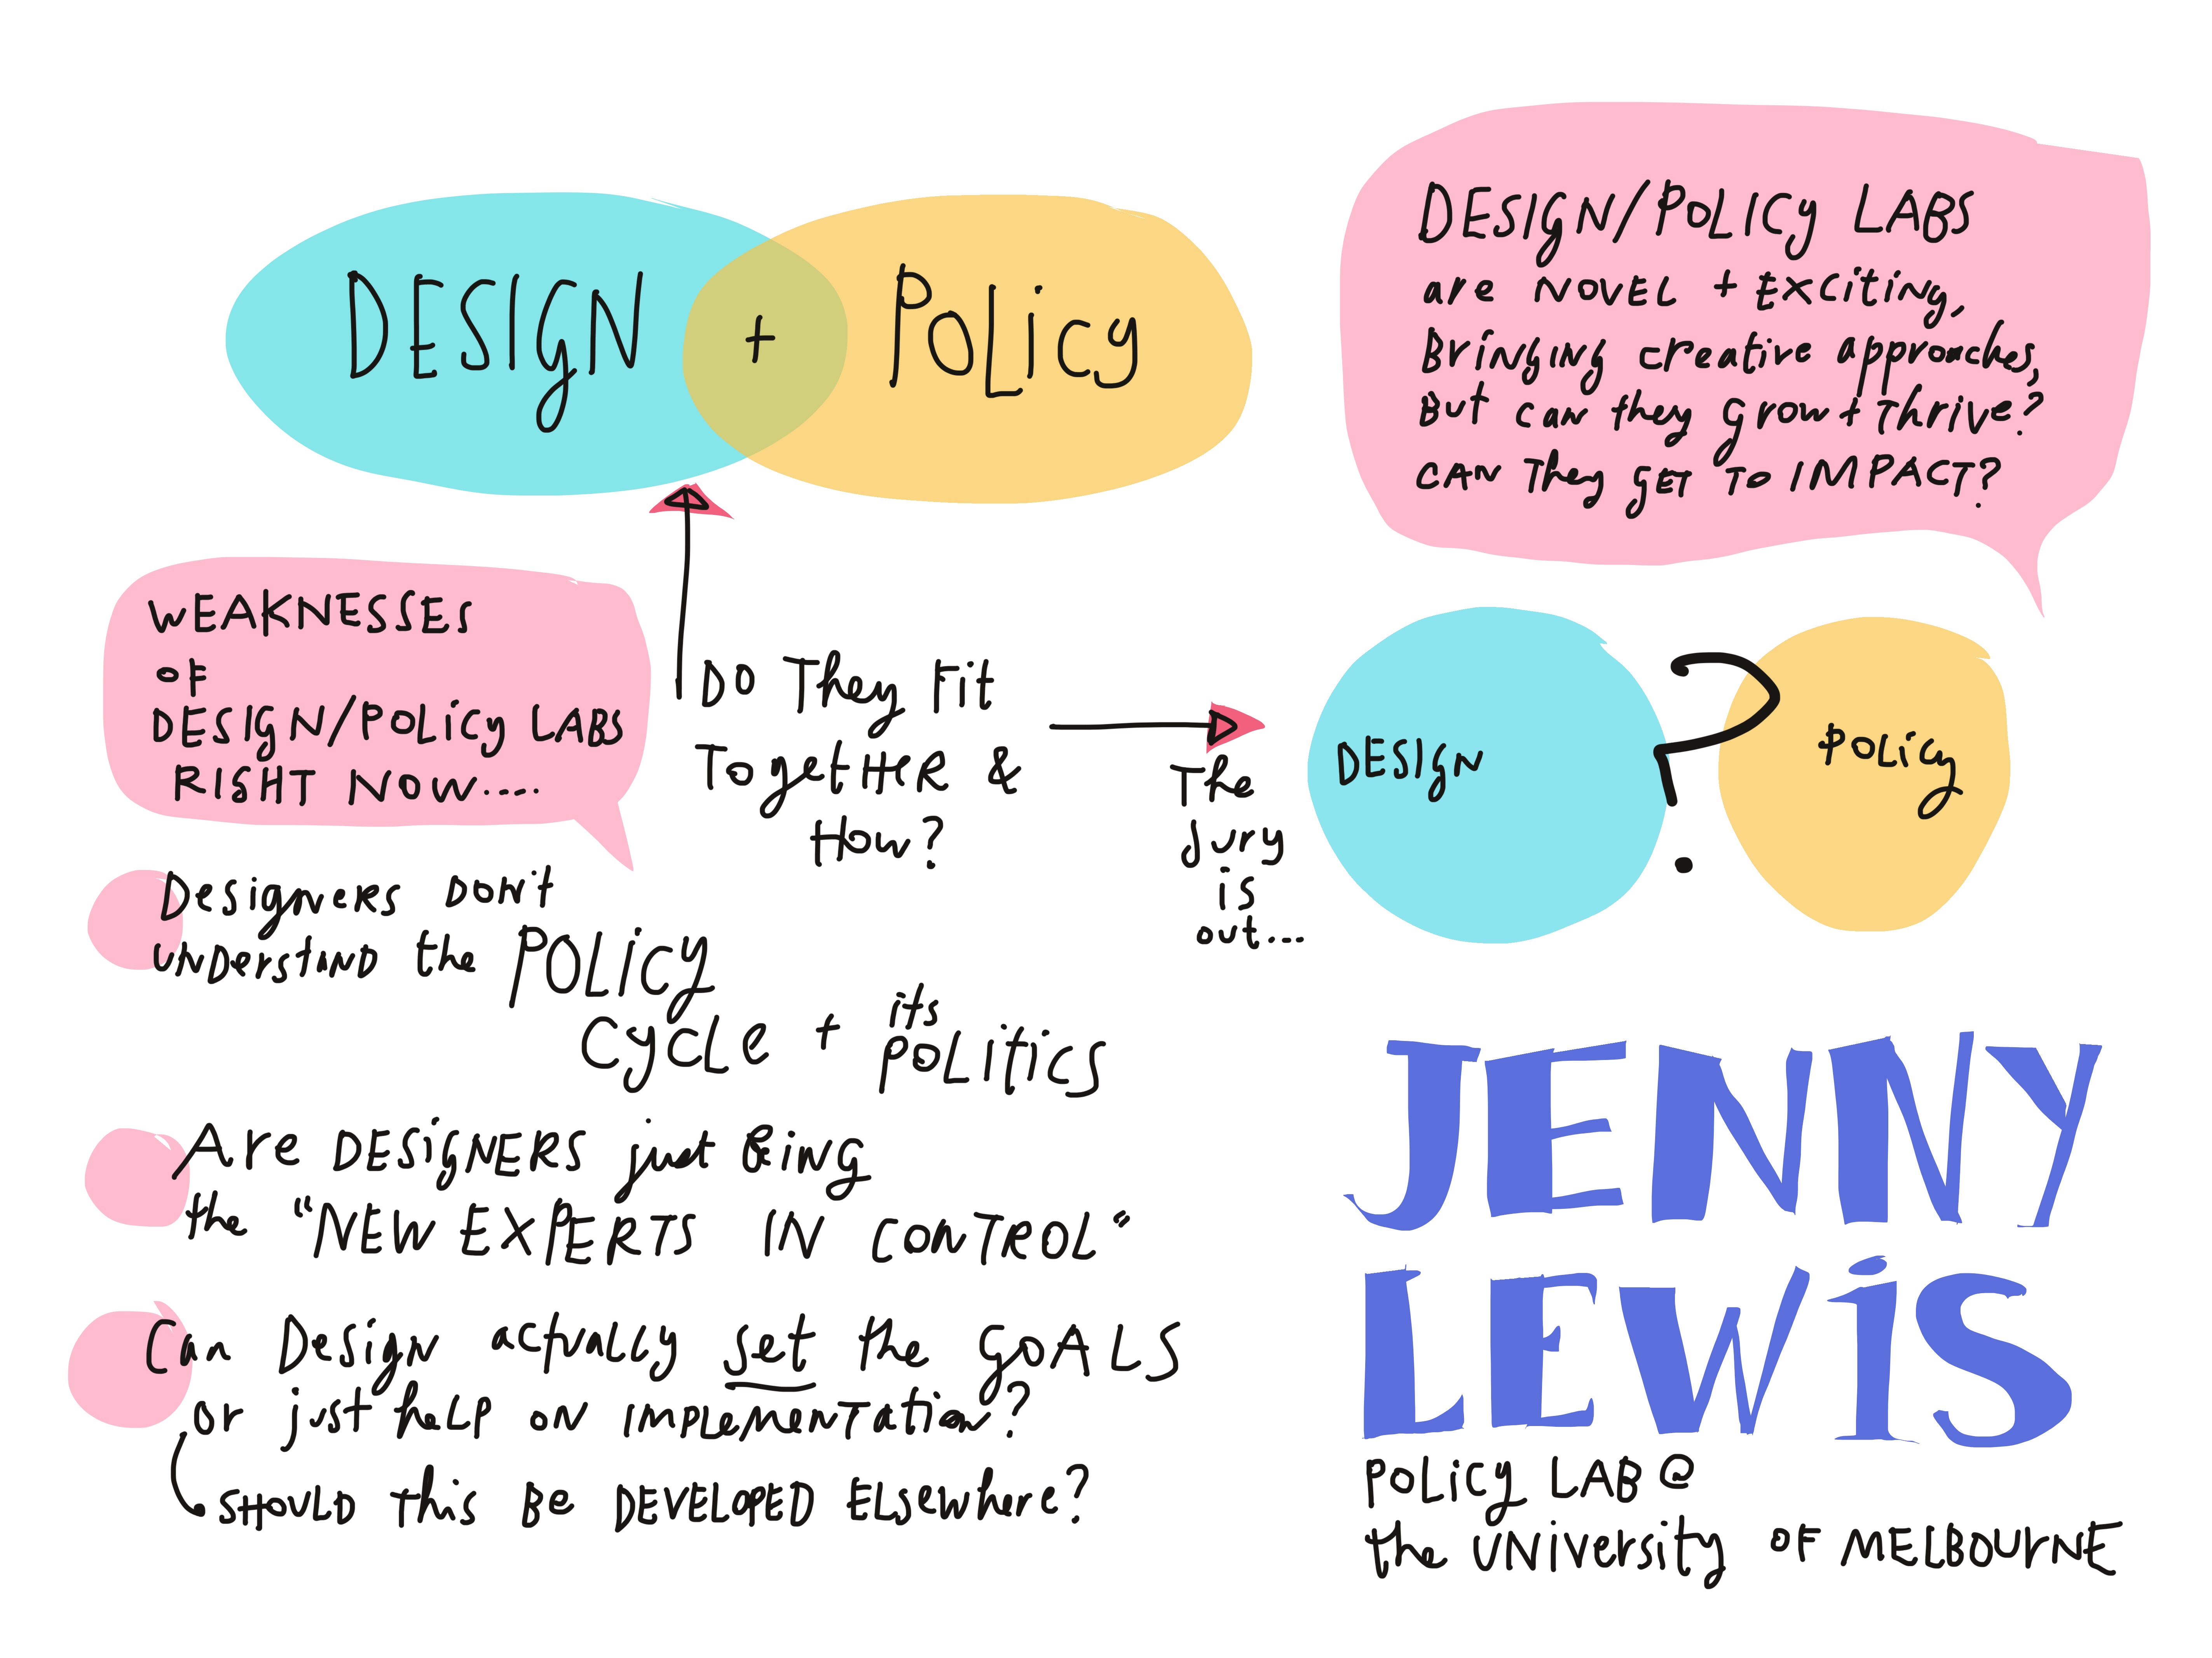 DESIGN + POLICY
DESIGN/POLICY LABS
are NOVEL + EXCiting,
Bringing creative approaches,
But can they grow + Thrive?
CAN They GET To IMPACT?
WEAKNESSES
OF
DESIGN/POLICY LABS
RIGHT NOW....
DO They Fit
TogetHER &
How?
The
Jury
is
out...
DESIGN
?
POLicy
Designers DON't
UNDerstAND the POLicy
CycLe + its POLitics
Are DESIGNERS just Being
the "NEW EXPERTS IN CONTROL"
Can Design actually set the GOALS
or just help on implementation?
SHOULD this Be DEVELOPED ELSewhere?
JENNY
LEWiS
POLICY LAB @
the UNIVersity OF MELBOURNE